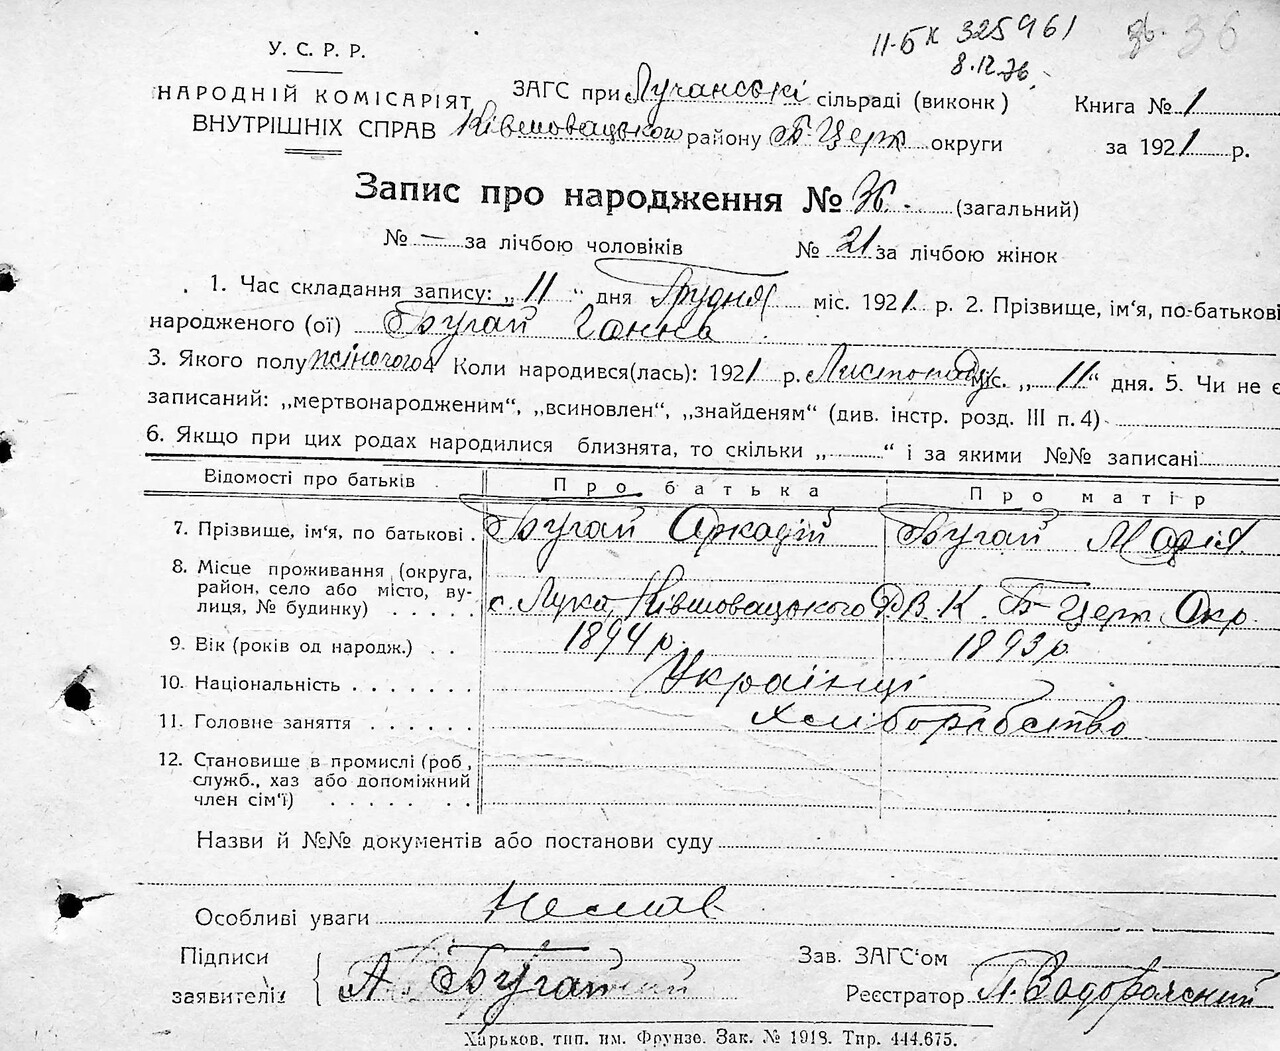 II-БК 325961
8.12.76.
36. 36
У. С. Р. Р.
НАРОДНІЙ КОМІСАРІЯТ
ВНУТРІШНІХ СПРАВ
ЗАГС при Лучанські сільраді (виконк) Книга № 1
Ківшовацького району Б-Церк округи за 1921 р.
Запис про народження № 36. (загальний)
№ — за лічбою чоловіків № 21 за лічбою жінок
1. Час складання запису: „ 11 “ дня Грудня міс. 1921 р. 2. Прізвище, ім'я, по-батькові
народженого (ої) Бугай Ганна
3. Якого полу жіночого 4 Коли народився(лась): 1921 р. Листопаду міс. „ 11 “ дня. 5. Чи не є
записаний: „мертвонародженим“, „всиновлен“, „знайденям“ (див. інстр. розд. III п. 4)
6. Якщо при цих родах народилися близнята, то скільки „ “ і за якими №№ записані
Відомості про батьків Про батька Про матір
7. Прізвище, ім'я, по батькові . Бугай Аркадій Бугай Марія
8. Місце проживання (округа,
район, село або місто, ву-
лиця, № будинку) . . . . с. Лука, Ківшовацького Р.В.К. Б-Церк. Окр.
9. Вік (років од народж.) . . 1894 р. 1893 р.
10. Національність . . . . . . . Українці
11. Головне заняття . . . . . . Хліборобство
12. Становище в промислі (роб,
служб., хаз або допоміжний
член сім'ї) . . . . . . .
Назви й №№ документів або постанови суду
Особливі уваги Немає
Підписи
заявителів А. Бугай
Зав. ЗАГС'ом
Реєстратор П. Водоряский
Харьков, тип. им. Фрунзе. Зак. № 1918. Тир. 444.675.